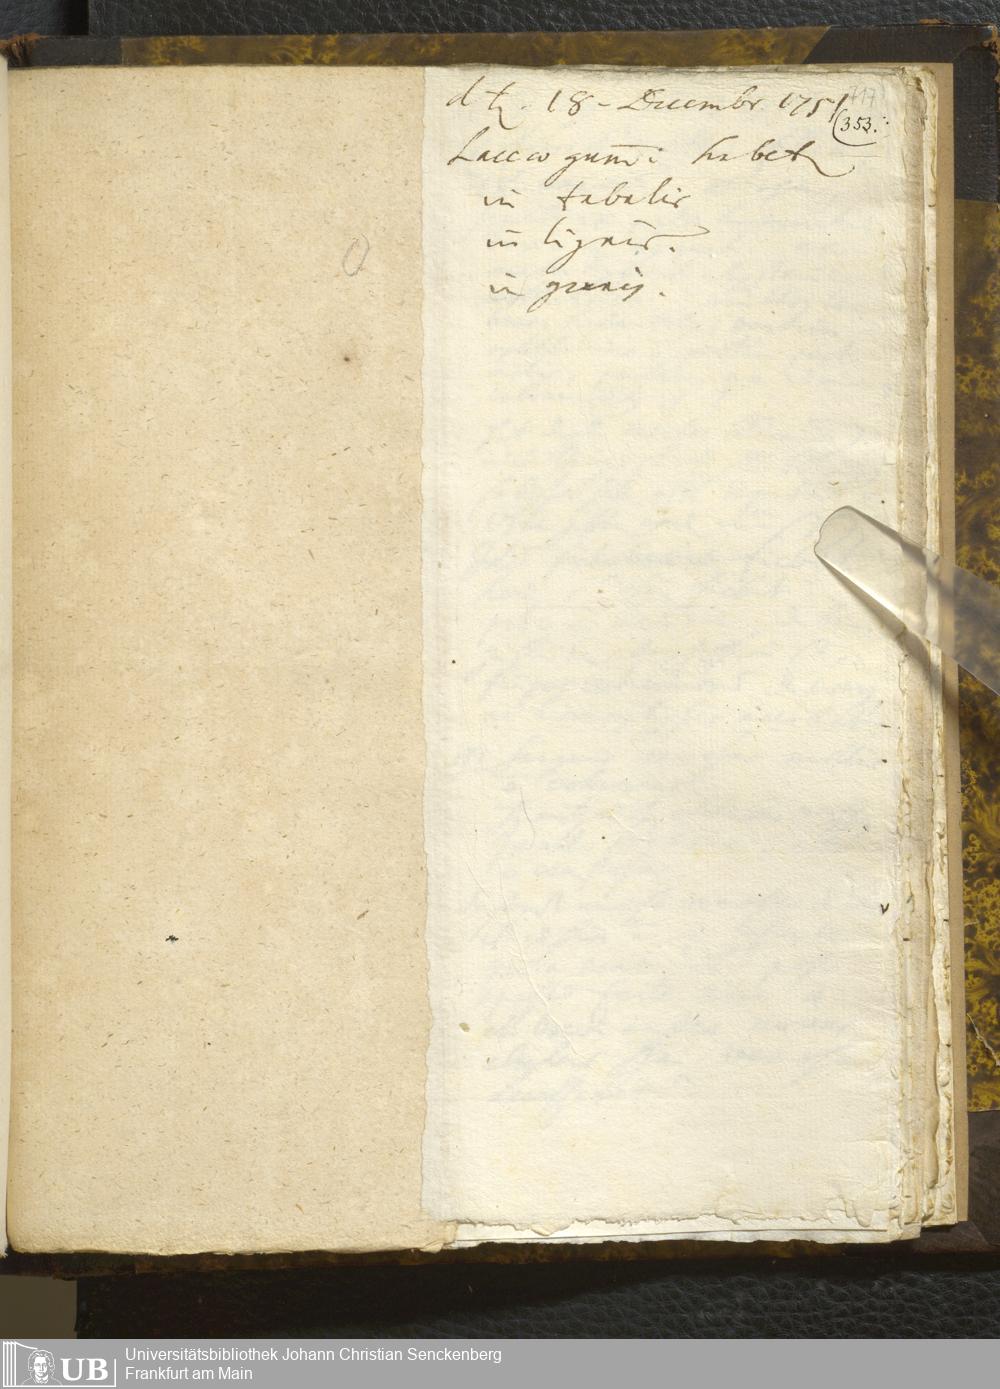 d ♄. 18 - Decembr. 1751
117
353.
Lacca gum̄i habet
in tabulis
in lignis.
in granis.
UB Universitätsbibliothek Johann Christian Senckenberg
Frankfurt am Main